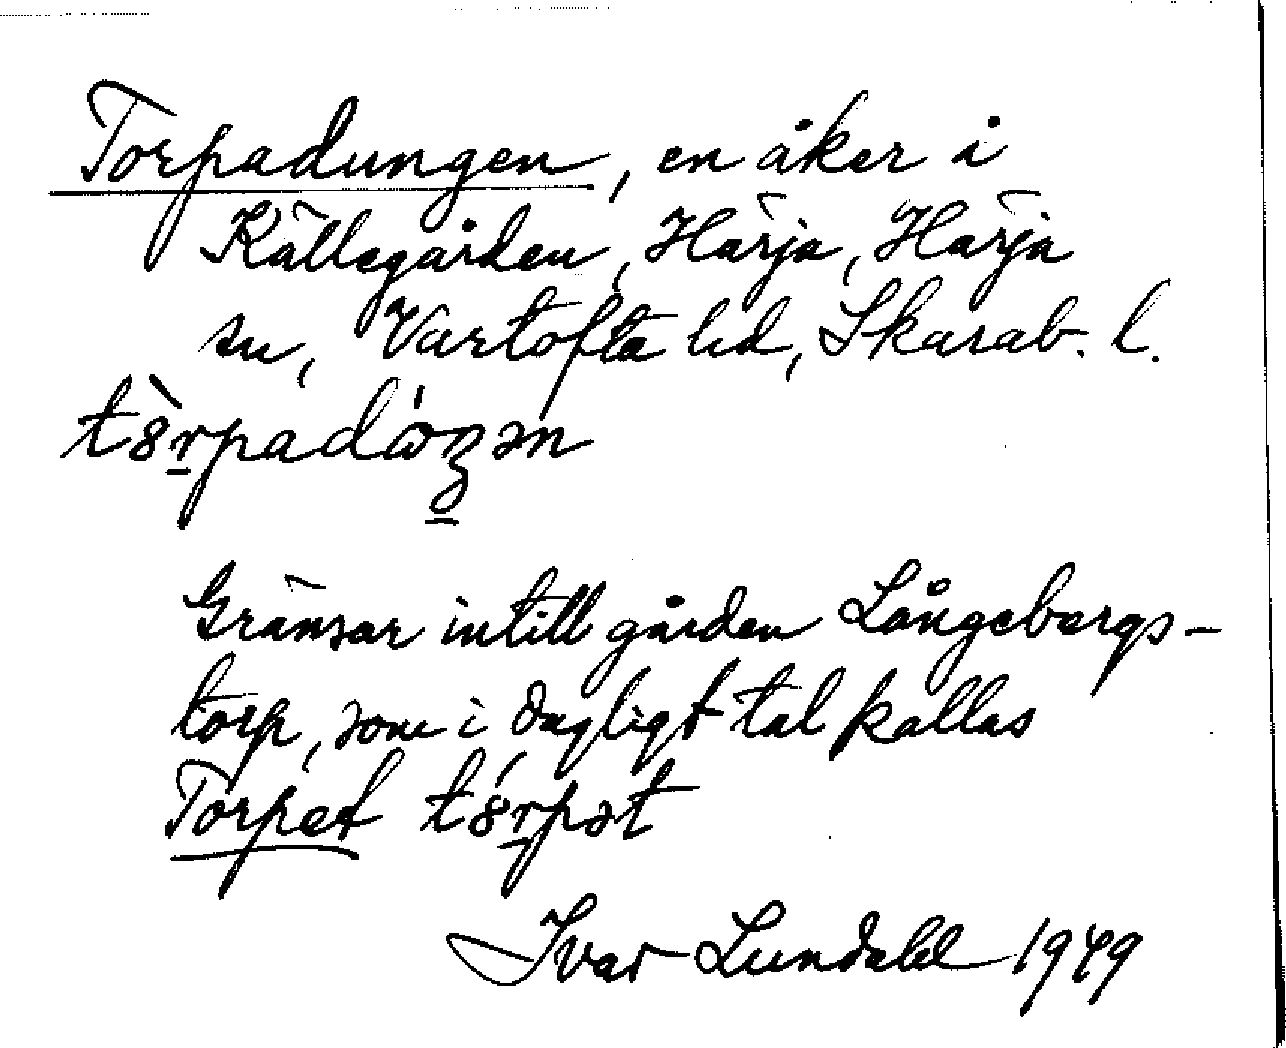 Torpadungen, en åker i
Källegården, Härja, Härja
sn, Vartofta hd, Skarab. l.
tȣ̀rpadáŋən
Gränsar intill gården Långebergs-
torp, som i dagligt tal kallas
Torpet tȣ́rpət
Ivar Lundahl 1949